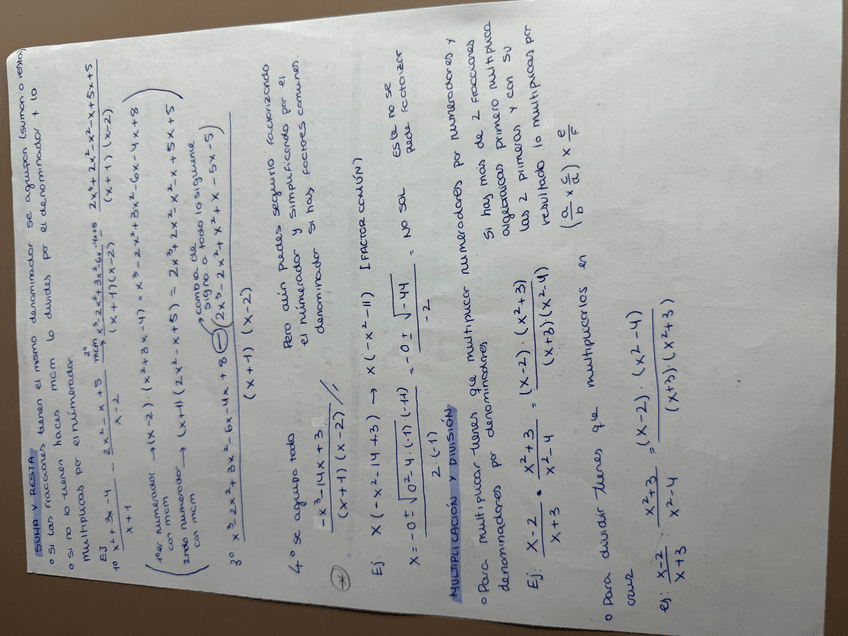 SUMA Y RESTA
o Si las fracciones tienen el mismo denominador se agrupan (suman o restan)
o Si no lo tienen haces mcm lo divides por el denominador + lo
multiplicas por el numerador.
Ej
1º x²+3x-4 / x+1 - 2x²-x+5 / x-2 mcm → 2º x³-2x²+3x²-6x-4x+8 / (x+1)(x-2) 2x³+2x²-x²-x+5x+5 / (x+1)(x-2)
(1º er numerador → (x-2)·(x²+3x-4) = x³-2x²+3x²-6x-4x+8
con mcm
2ndo numerador → (x+1)(2x²-x+5) = 2x³+2x²-x²-x+5x+5)
con mcm
→ cambia de
signo a todo lo siguiente
3º x³-2x²+3x²-6x-4x+8 - (2x³-2x²+x²+x-5x-5) / (x+1)(x-2)
4º se agrupa todo
-x³-14x+3 / (x+1)(x-2) //
Pero aún puedes seguirlo factorizando
el númerador y simplificando por el
denominador si hay factores comunes.
*
Ej: x(-x²-14+3) → x(-x²-11) [FACTOR COMÚN]
x = -0±√0²-4·(-1)·(-11) / 2·(-1) = -0±√-44 / -2 = NO SOL Este no se
puede factorizar
MULTIPLICACIÓN Y DIVISIÓN
o Para multiplicar tienes que multiplicar numeradores por numeradores y
denominadores por denominadores
Ej: x-2 / x+3 · x²+3 / x²-4 = (x-2)·(x²+3) / (x+3)(x²-4)
Si hay mas de 2 fracciones
algebraicas primero multiplica
las 2 primeras y con su
resultado lo multiplicas por
(a/b x c/d) x e/f
o Para dividir tienes que multiplicarlos en
cruz
ej: x-2 / x+3 : x²+3 / x²-4 = (x-2)·(x²-4) / (x+3)·(x²+3)